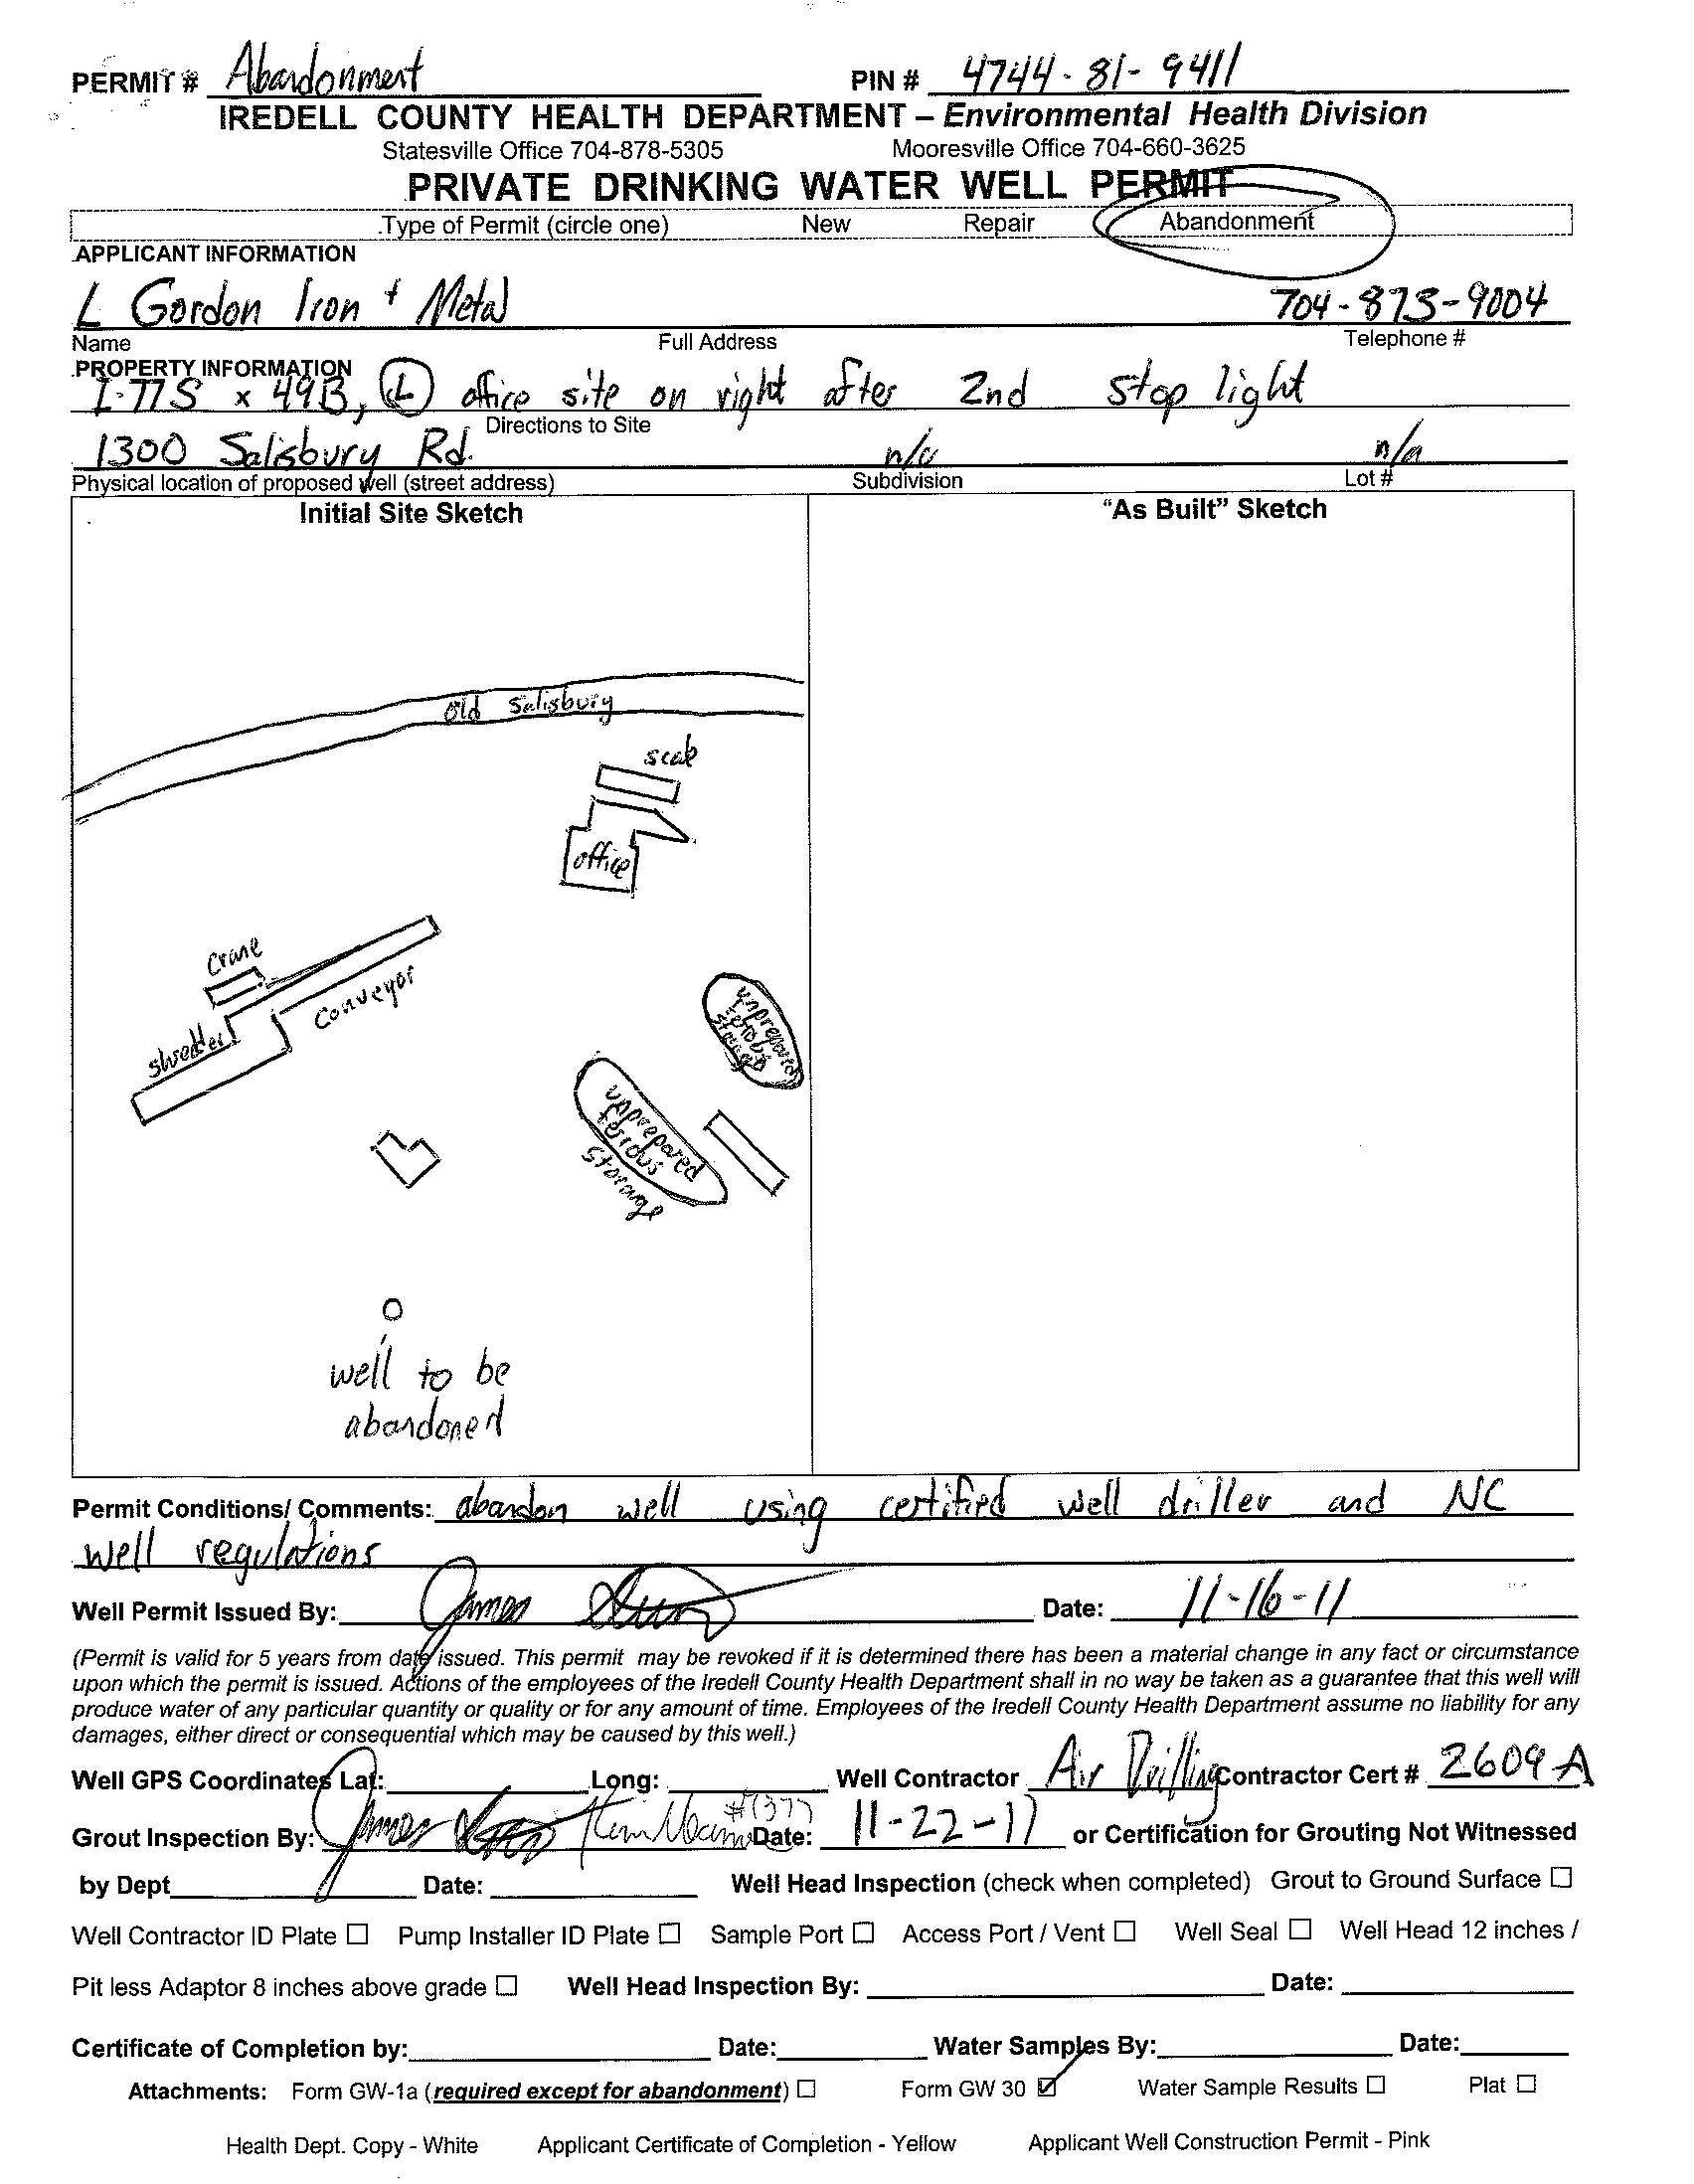 PERMIT # Abandonment PIN # 4744-81-9411
IREDELL COUNTY HEALTH DEPARTMENT – Environmental Health Division
Statesville Office 704-878-5305 Mooresville Office 704-660-3625
PRIVATE DRINKING WATER WELL PERMIT
Type of Permit (circle one) New Repair Abandonment
APPLICANT INFORMATION
L Gordon Iron + Metal 704-873-9004
Name Full Address Telephone #
PROPERTY INFORMATION
I-77S x 49B, (L) office site on right after 2nd stop light
Directions to Site
1300 Salisbury Rd. n/a n/a
Physical location of proposed well (street address) Subdivision Lot #
Initial Site Sketch "As Built" Sketch
old Salisbury
scale
office
crane
conveyor
shredder
unprepared
storage
unprepared
ferious
storage
well to be
abandoned
Permit Conditions/ Comments: abandon well using certified well driller and NC
well regulations
Well Permit Issued By: James Date: 11-16-11
(Permit is valid for 5 years from date issued. This permit may be revoked if it is determined there has been a material change in any fact or circumstance
upon which the permit is issued. Actions of the employees of the Iredell County Health Department shall in no way be taken as a guarantee that this well will
produce water of any particular quantity or quality or for any amount of time. Employees of the Iredell County Health Department assume no liability for any
damages, either direct or consequential which may be caused by this well.)
Well GPS Coordinates Lat: Long: Well Contractor Air Drilling Contractor Cert # 2609-A
Grout Inspection By: James #1377 Date: 11-22-11 or Certification for Grouting Not Witnessed
by Dept Date: Well Head Inspection (check when completed) Grout to Ground Surface ☐
Well Contractor ID Plate ☐ Pump Installer ID Plate ☐ Sample Port ☐ Access Port / Vent ☐ Well Seal ☐ Well Head 12 inches /
Pit less Adaptor 8 inches above grade ☐ Well Head Inspection By: Date:
Certificate of Completion by: Date: Water Samples By: Date:
Attachments: Form GW-1a (required except for abandonment) ☐ Form GW 30 ☑ Water Sample Results ☐ Plat ☐
Health Dept. Copy - White Applicant Certificate of Completion - Yellow Applicant Well Construction Permit - Pink